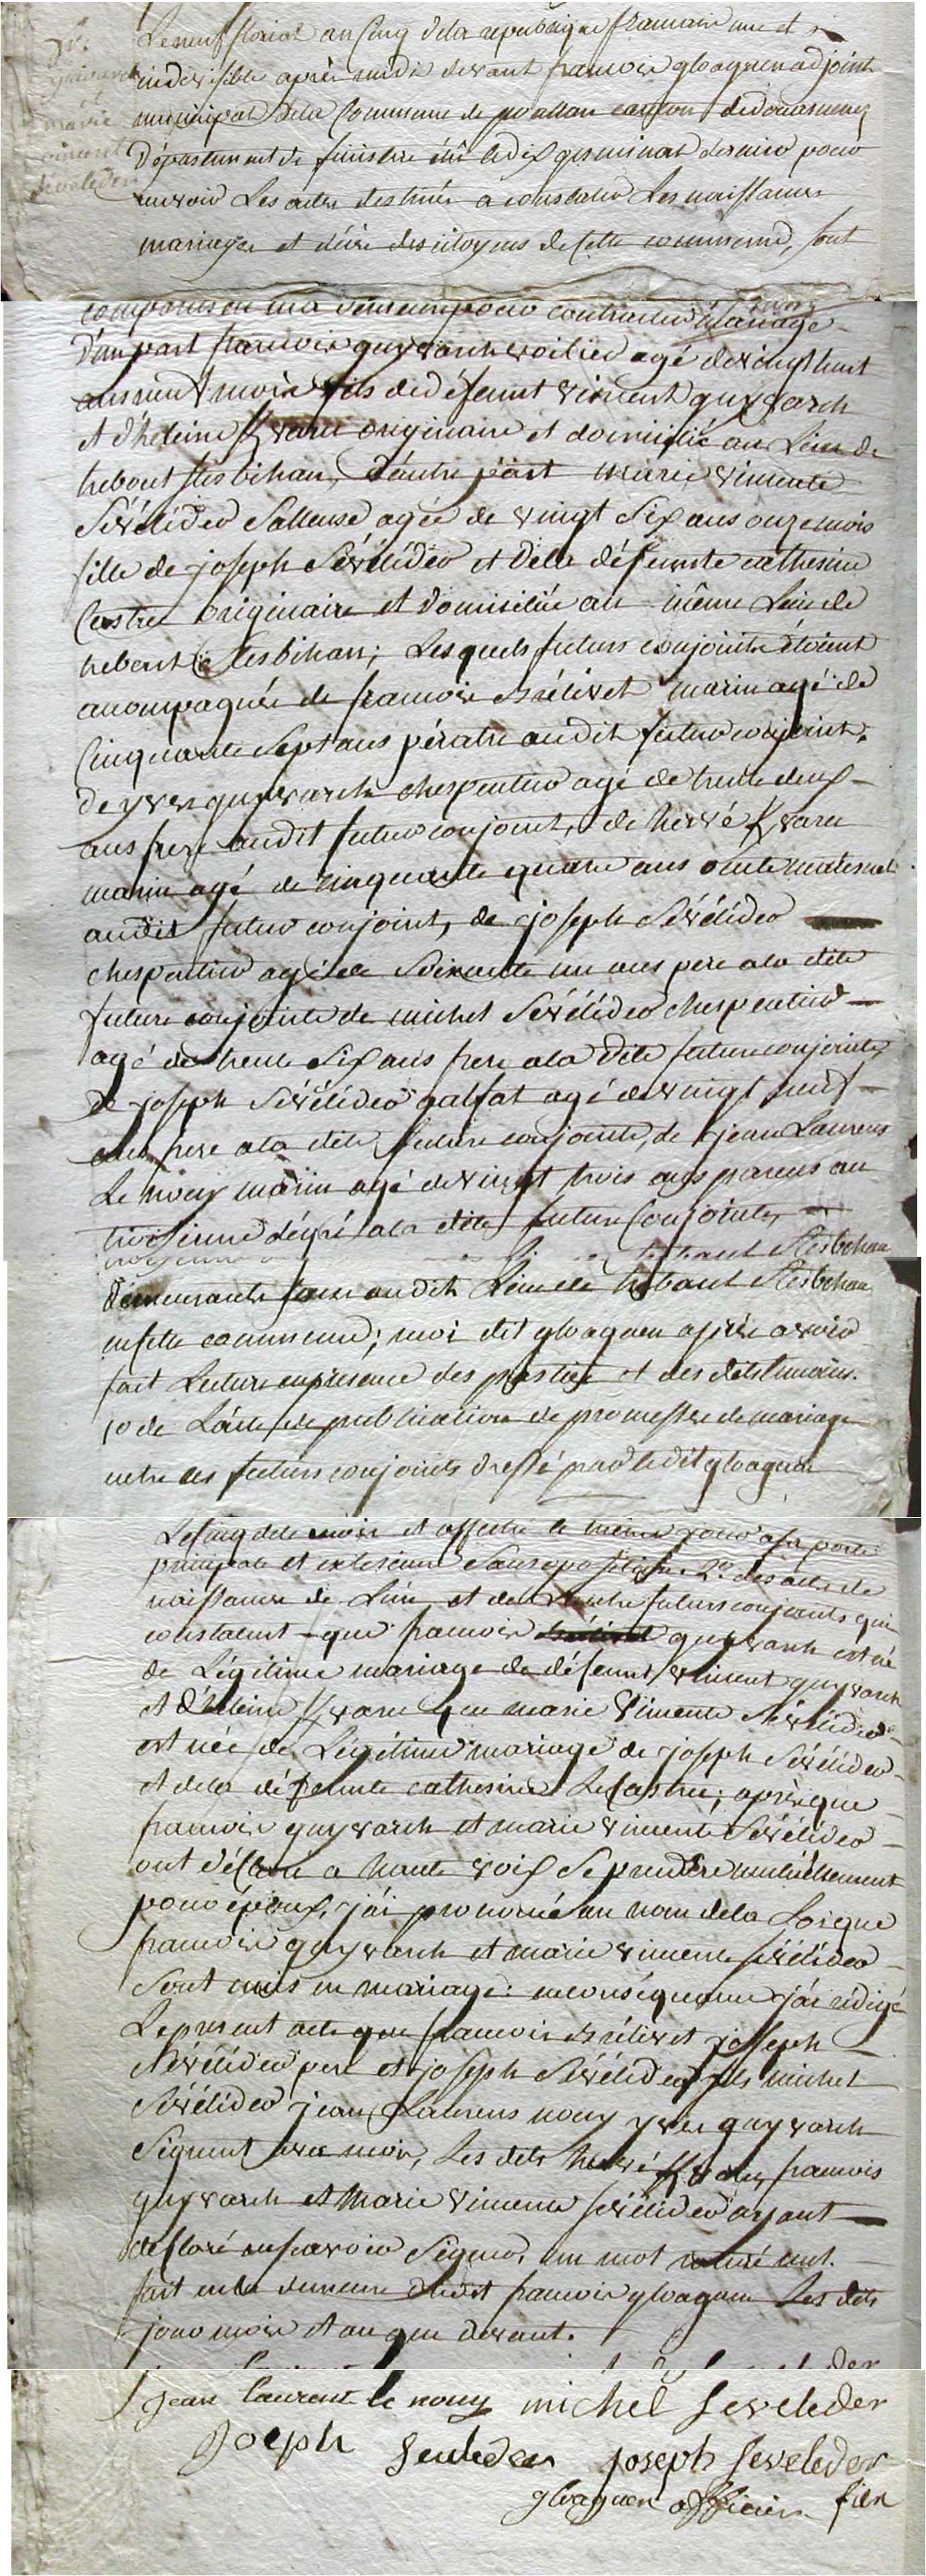 Le neuf floréal an cinq dela republique francaise une et
indivisible après midi devant francois gloaguen adjoint
municipal dela Commune de poullan canton dedouarnenez
Département de finistere élu le dix germinal dernier pour
recevoir Les actes destinés a constater Les naissances
mariages et décès des citoyens de cette commune, sont
comparus en ma demeure pour contracter mariage
D'une part francois guyvarch voilier agé devingt huit
ans neuf mois fils dedéfunt vincent guyvarch
et d'heleine Kvarec originaire et domicilié au Lieu de
trebout Stesbihan, D'autre part marie vincente
Sévélédeo Salleuse agée de vingt Six ans onze mois
fille de joseph Sévélédeo et dela défeunte catherine
Castrec originaire et domiciliée au même Lieu de
trebout Stesbihan; Lesquels futurs conjoints étoient
acompagnés de francois marin agé de
Cinquante Sept ans pératre audit futur conjoint,
de yves guyvarch cherpentier agé de trente deux
ans frere audit futur conjoint, de hervé Kvarec
marin agé de cinquante quatre ans oncle maternel
audit futur conjoint, de joseph Sévélédeo
cherpentier agé de Soixante un ans pere ala dite
future conjointe de michel Sévélédeo cherpentier
agé de trente Six ans frere ala dite future conjointe,
de joseph Sévélédeo galfat agé devingt neuf
ans frere ala dite future conjointe, de jean Laurens
Le nouy marin agé devingt trois ans parens au
troisieme dégré ala dite future Conjointe,
demeurants tous audit Lieu de trebout Stesbihan
encette commune; moi dit gloaguen après avoir
fait Lecture enpresence des parties et des dits temoins.
1o de L'acte de publication de promesse de mariage
entre les futurs conjoints dressé par ledit gloaguen
Lecinq dece mois et affiché le même jour asa porte
principale et exterieure Sansoposition. 2o. des actes de
naissance de L'un, et de L'autre futurs conjoints qui
constatent que francois guyvarch est né
de Légitime mariage de défeunt vincent guyvarch
et d'heleine Kvarec que marie Vincente Sévélédeo
est née de Légitime mariage de joseph Sévélédeo
et dela défeunte catherine Le Castrec; après que
francois guyvarch et marie vincente Sévélédeo
ont déclaré a haute voix Se prendre mutuellement
pour époux, j'ai prononcé au nom dela Loi que
francois guyvarch et marie vincente Sévélédeo
Sont unis en mariage: enconséquence j'ai rédigé
Lepresent acte que francois joseph
Sévélédeo pere et joseph Sévélédeo fils michel
Sévélédeo jean Laurens nouy yves guyvarch
Signent avec moi, Les dits hervé Kvarec, francois
guyvarch et Marie Vincente Sévélédeo ayant
déclaré nesavoir Signer, un mot raturé nul.
fait enla demeure dudit francois gloaguen Les dits
jour mois et an que devant.
jean laurent le nouy michel seveleder
Joseph Seuleder joseph seveleder
gloaguen officier fils